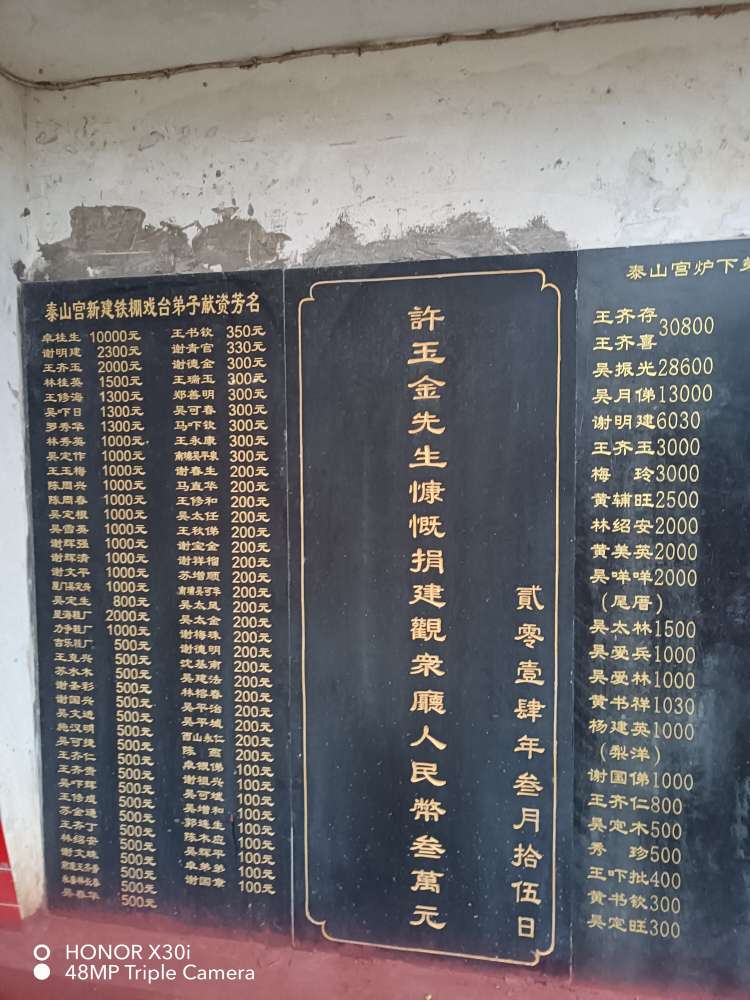 泰山宫新建铁棚戏台弟子献资芳名
卓桂生 10000元
谢明建 2300元
王齐玉 2000元
林桂英 1500元
王修海 1300元
吴吓日 1300元
罗秀华 1300元
林秀英 1000元
吴定作 1000元
王玉梅 1000元
陈周兴 1000元
陈周春 1000元
吴定根 1000元
吴雪英 1000元
谢辉强 1000元
谢辉清 1000元
谢文平 1000元
1000元
吴定生 800元
星海鞋厂 2000元
力争鞋厂 1000元
吉乐鞋厂 500元
王克兴 500元
苏水木 500元
谢圣彩 500元
谢国兴 500元
吴文进 500元
施汉明 500元
吴可捷 500元
王齐仁 500元
王齐贵 500元
吴吓辉 500元
王修成 500元
苏金通 500元
王齐丁 500元
林绍安 500元
谢文珠 500元
500元
500元
吴春华 500元
王书钦 350元
谢青官 330元
谢德金 300元
王瑞玉 300元
郑善明 300元
吴可春 300元
马吓钦 300元
王永康 300元
南埔吴平泉 300元
谢春生 200元
马直华 200元
王修和 200元
吴太任 200元
王秋俤 200元
谢宝金 200元
谢祥榴 200元
苏增顺 200元
南埔吴可华 200元
吴太凤 200元
吴太金 200元
谢梅珠 200元
谢德明 200元
沈基南 200元
吴建法 200元
林榕春 200元
吴平治 200元
吴平城 200元
西山永仁 200元
陈鑫 200元
卓银俤 100元
谢祖兴 100元
吴可斌 100元
吴增和 100元
郭建生 100元
陈木应 100元
吴辉平 100元
卓弟弟 100元
谢国章 100元
許玉金先生慷慨捐建觀衆廳人民幣叁萬元
贰零壹肆年叁月拾伍日
泰山宫炉下弟
王齐存
王齐喜 30800
吴振光 28600
吴月俤 13000
谢明建 6030
王齐玉 3000
梅玲 3000
黄辅旺 2500
林绍安 2000
黄美英 2000
吴咩咩 2000
(尾厝)
吴太林 1500
吴爱兵 1000
吴爱林 1000
黄书祥 1030
杨建英 1000
(梨洋)
谢国俤 1000
王齐仁 800
吴定木 500
秀珍 500
王吓批 400
黄书钦 300
吴定旺 300
HONOR X30i
48MP Triple Camera